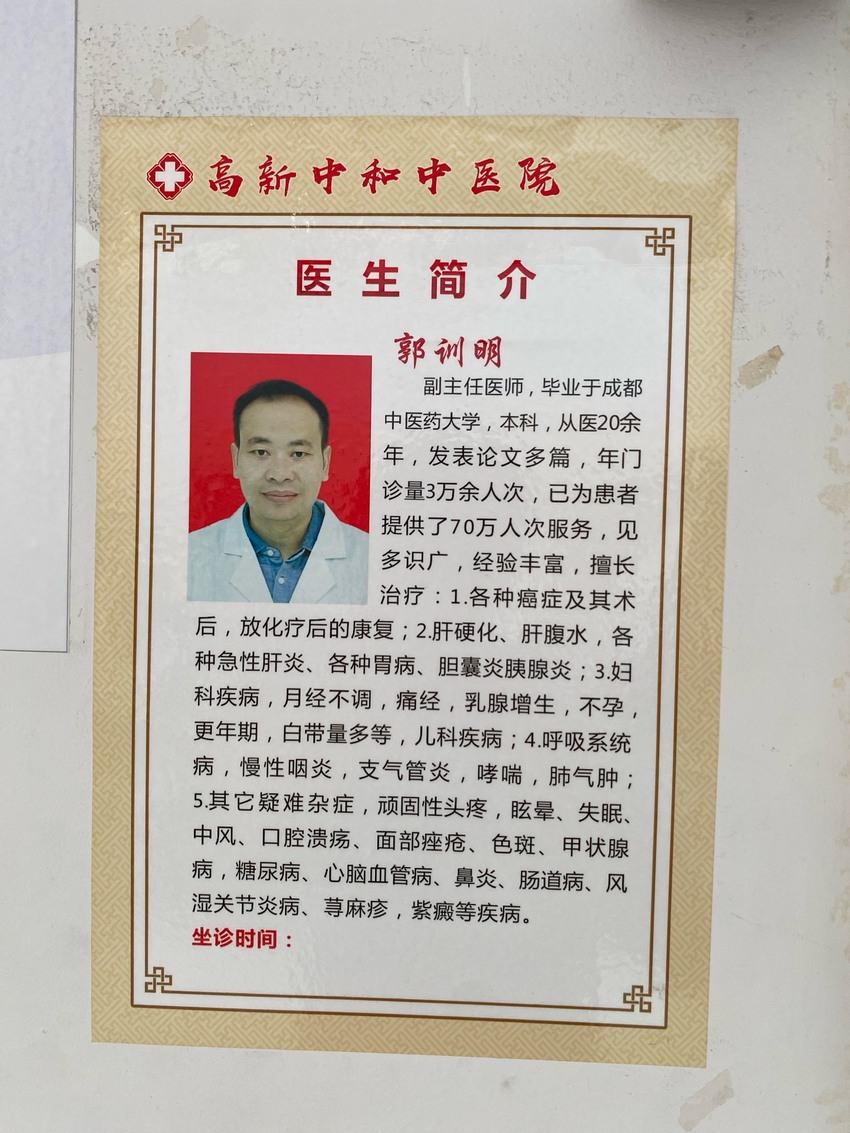 高新中和中医院
医生简介
郭训明
副主任医师，毕业于成都
中医药大学，本科，从医20余
年，发表论文多篇，年门
诊量3万余人次，已为患者
提供了70万人次服务，见
多识广，经验丰富，擅长
治疗：1.各种癌症及其术
后，放化疗后的康复；2.肝硬化、肝腹水，各
种急性肝炎、各种胃病、胆囊炎胰腺炎；3.妇
科疾病，月经不调，痛经，乳腺增生，不孕，
更年期，白带量多等，儿科疾病；4.呼吸系统
病，慢性咽炎，支气管炎，哮喘，肺气肿；
5.其它疑难杂症，顽固性头疼，眩晕、失眠、
中风、口腔溃疡、面部痤疮、色斑、甲状腺
病，糖尿病、心脑血管病、鼻炎、肠道病、风
湿关节炎病、荨麻疹，紫癜等疾病。
坐诊时间：